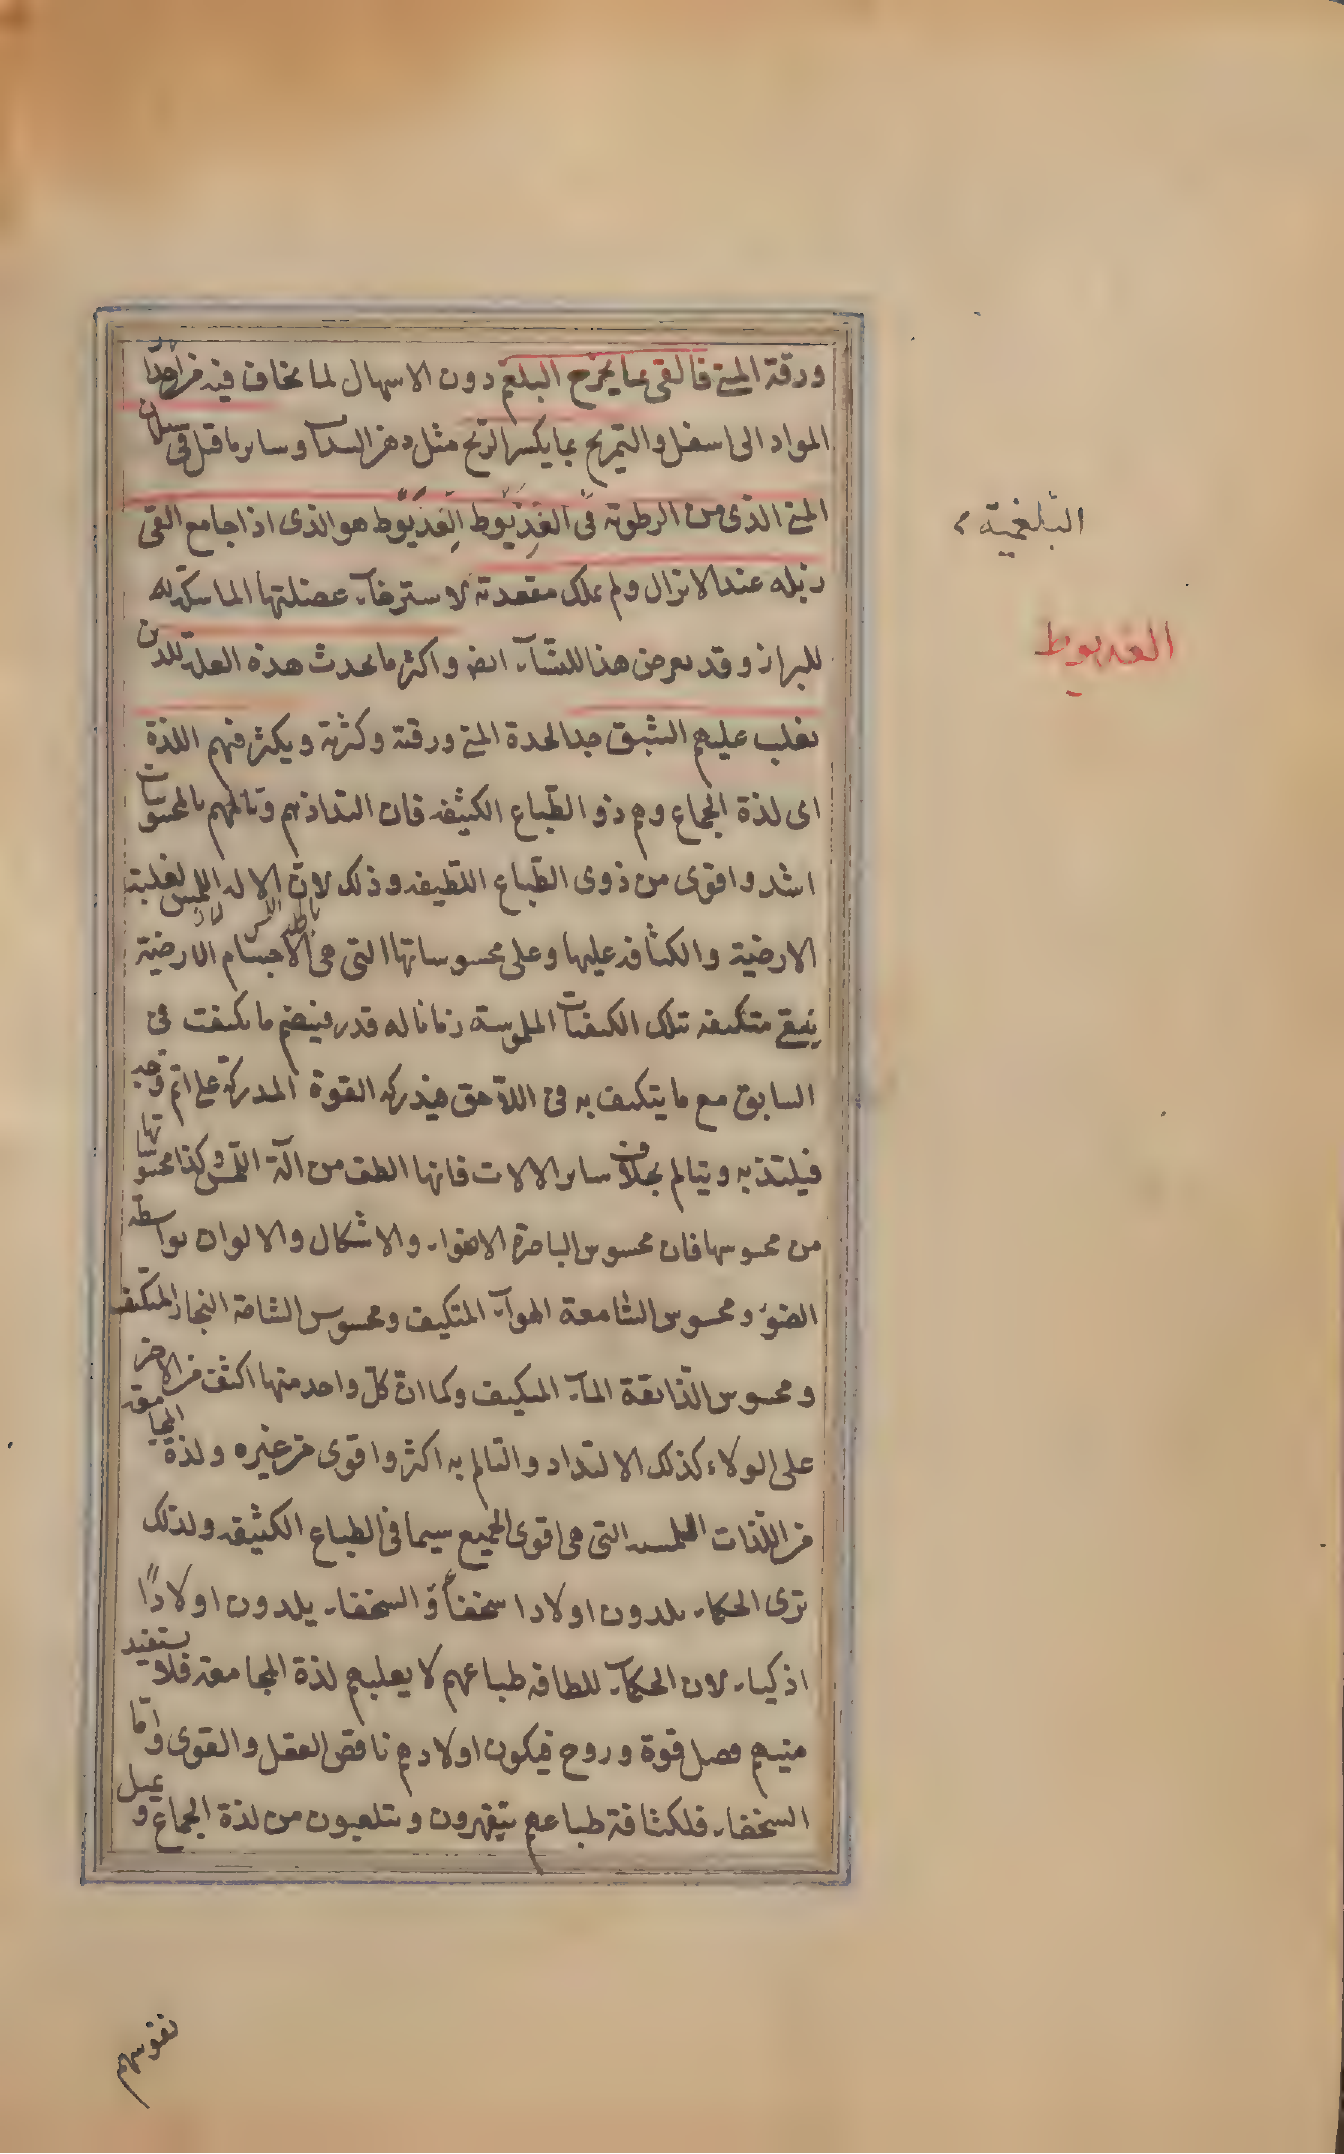 ورقة المنى فالقى بما يخرج البلغم دون الاسهال لما يخاف فيه من احدار
المواد الى اسفل والتمريخ بما يكسر الريح مثل دهن السداب وساير ما قيل فى سيلان
المنى الذى من الرطوبة فى العذيوط العذيوط هو الذى اذا جامع القى
زبله عند الانزال ولم يملك مقعدته لاسترخاء عضلتها الماسكة
للبراز وقد يعرض هذا للنساء ايضا واكثر ما يحدث هذه العلة للذين
يغلب عليهم الشبق جدا لحدة المنى ورقته وكثرته ويكثر فيهم اللذة
اى لذة الجماع وهم ذو الطباع الكثيفه فان التذاذهم وتالمهم بالمحسوسات
اشد واقوى من ذوى الطباع اللطيفه وذلك لان الاله اللمس لغلبة
الارضية والكثافه عليها وعلى محسوساتها التى هى الاجسام الارضية
يبقى متكيفه بتلك الكيفيات الملموسة زمانا له قدر فينضم ما تكيفت فى
السابق مع ما يتكيف به فى اللاحق فيدركه القوة المدركة على اتم وجه
فيلتذ به ويتالم بخلاف ساير الالات فانها الطف من آلة اللمس وكذا محسوساتها
من محسوسها فان محسوس الباصرة الاضواء والاشكال والالوان بواسطه
الضوء ومحسوس السامعة الهواء المتكيف ومحسوس الشامة البخار المتكيف
ومحسوس الذائقة الماء المتكيف وكما ان كل واحد منها اكثف من الاخر
على الولاء كذلك الالتذاذ والتالم به اكثر واقوى من غيره ولذة المجامعة
من اللذات اللمسيه التى هى اقوى الجميع سيما فى الطباع الكثيفه ولذلك
ترى الحكماء يلدون اولادا سخفاً و السخفاء يلدون اولاداً
اذكياء لان الحكماء للطافه طباعهم لا يغلبهم لذة المجامعه فلا يستفيد
منيهم فضل قوة وروح فيكون اولادهم ناقص العقل والقوى واما
السخفاء فلكثافة طباعهم يتقهرون ويتلعبون من لذة الجماع و يميل
البلغمية
العذيوط
نفوسهم